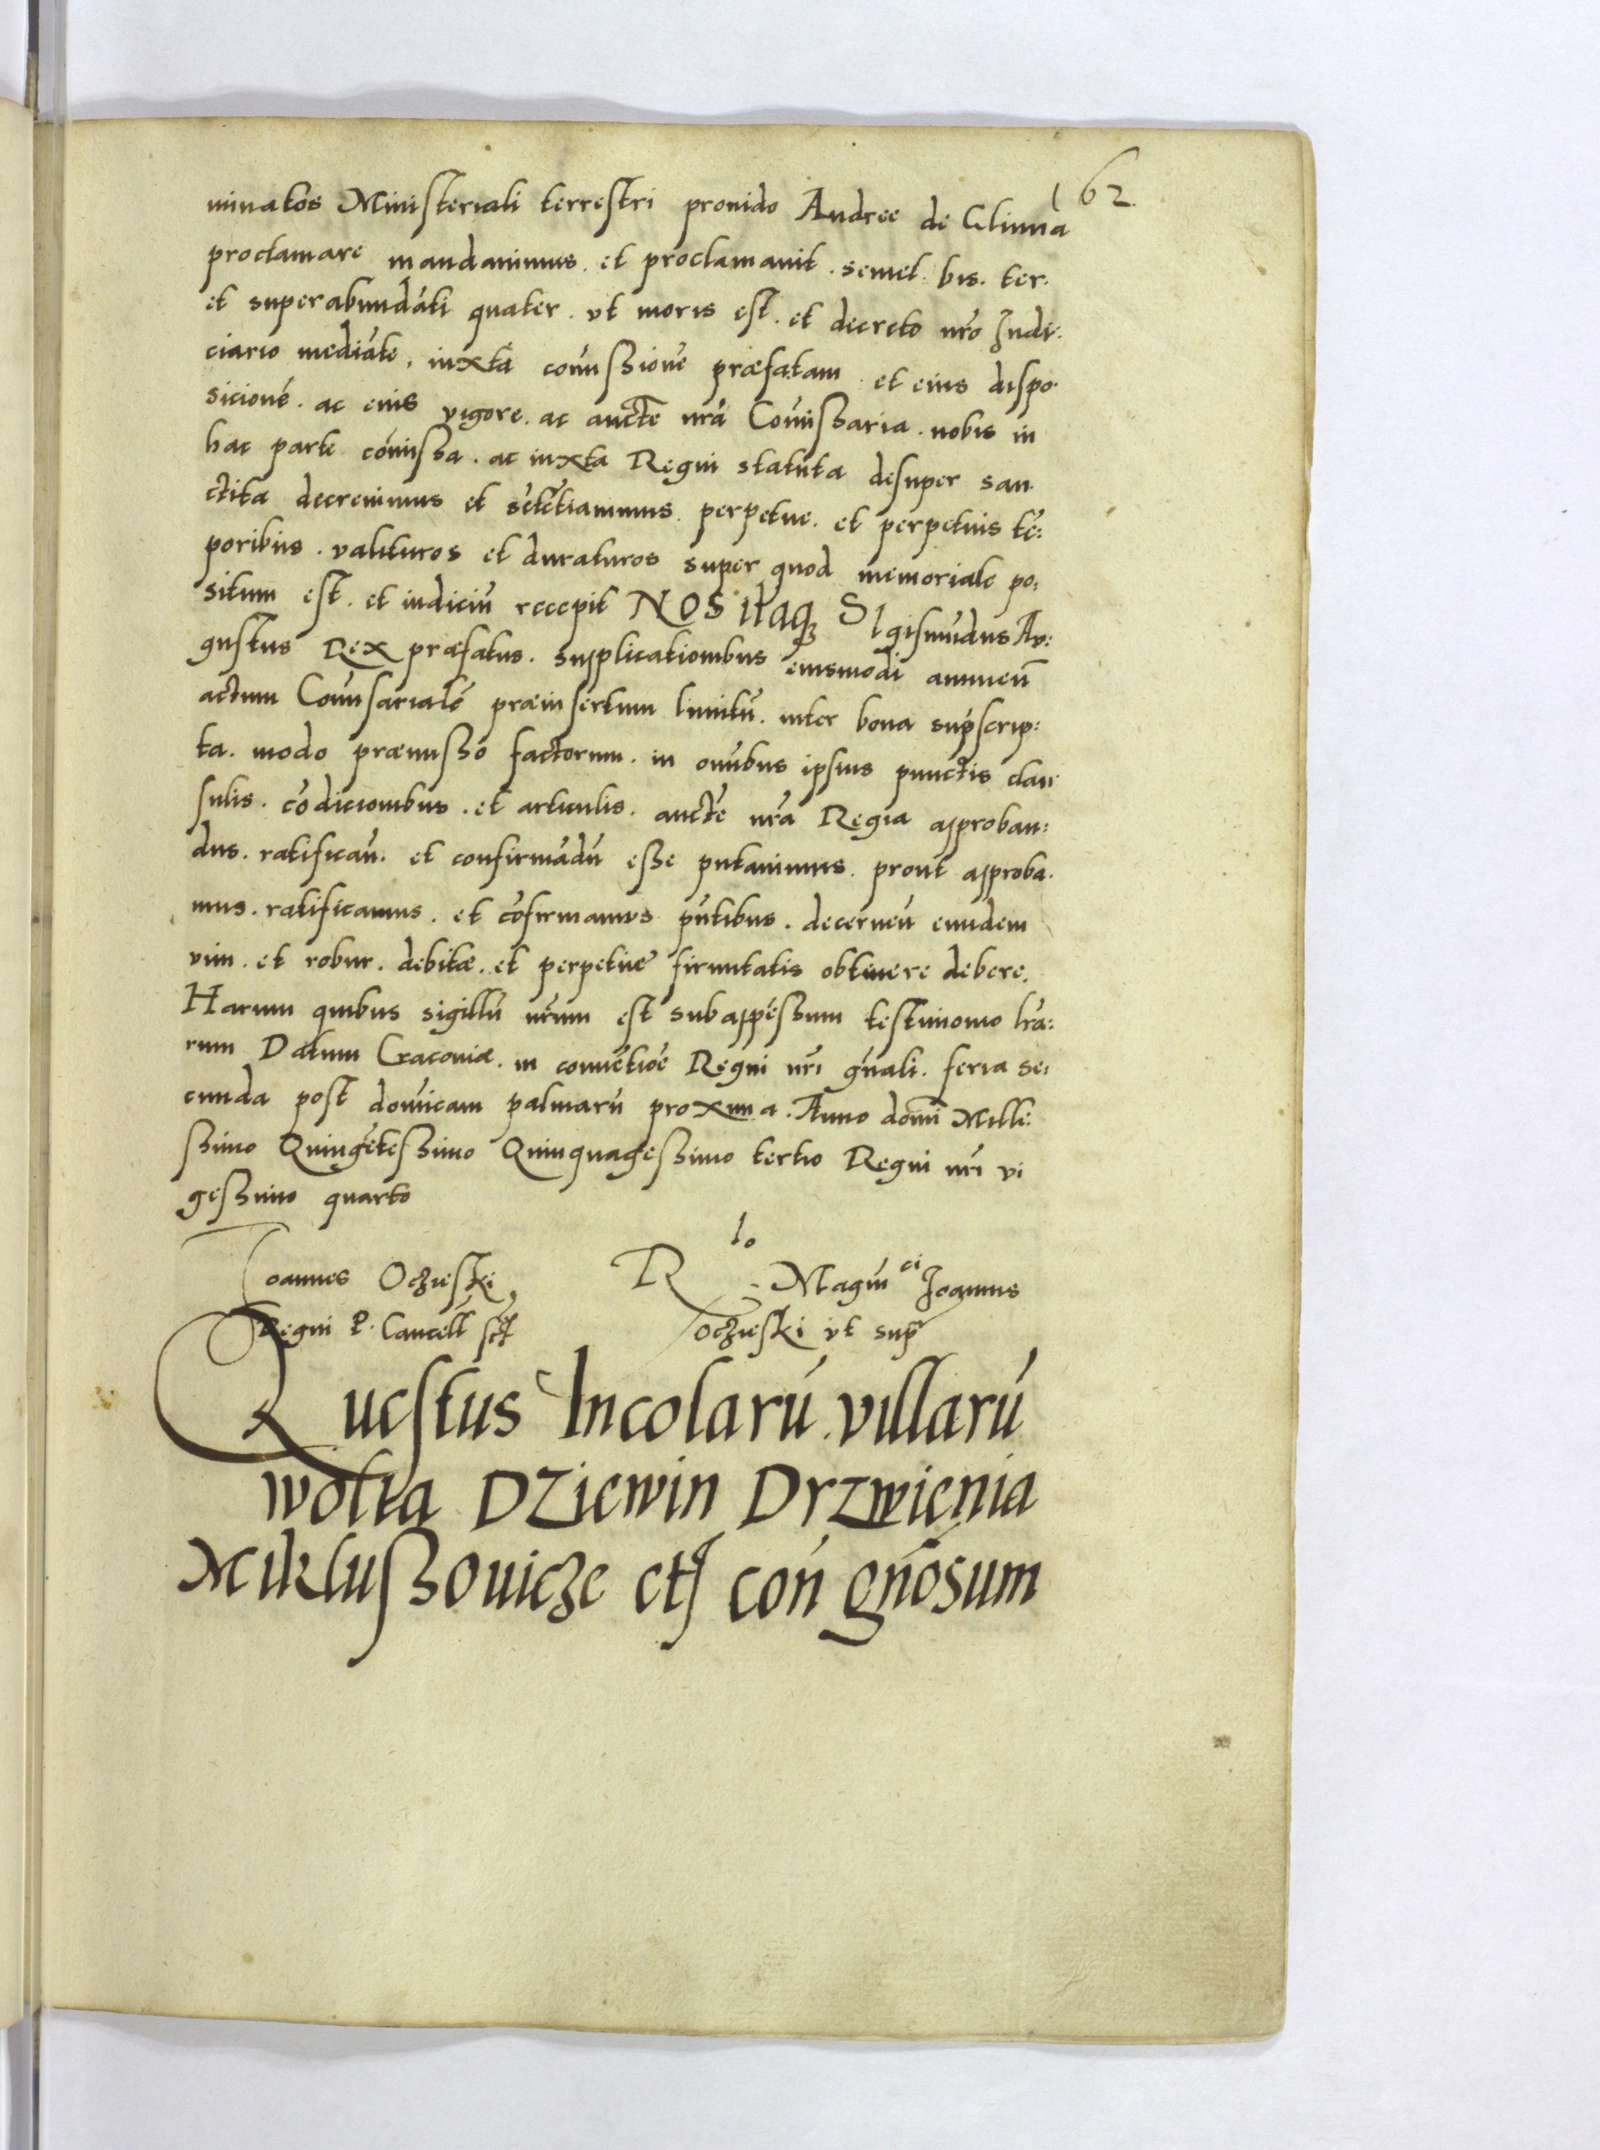 162
minatos Ministeriali terrestri prouido Andree de Glinna
proclamare mandauimus. et proclamauit. semel. bis. ter.
et superabundāti quater. vt moris est. et decreto nr̄o Judi:
ciario mediāte, iuxta comissionē præfatam et eius dispo.
sicionē. ac eius vigore. ac auctē nr̄a Comissaria. nobis in
hac parte comissa. ac iuxta Regni statuta desuper san.
ctita decreuimus et sētētiauimus perpetue. et perpetuis tē:
poribus. valituros et duraturos super quod memoriale po:
situm est. et iudiciū recepit NOS itaq3 SIgismūdus Av:
gustus Rex præfatus. supplicationibus eiusmodi annuen̄
actum Comissarialē præinsertum limitū. inter bona sup̄scrip:
ta. modo præmisso factorum. in omībus ipsius punctis clau
sulis. cōdicionibus. et articulis. auctē nr̄a Regia approban:
dus. ratifican̄. et confirmādū esse putauimus. prout approba.
mus. ratificamus. et cōfirmamus pn̄tibus. decernen̄ euidem
vim. et robur. debitæ. et perpetuę firmitatis obtinere debere.
Harum quibus sigillū nr̄um est subappēssum testimonio lr̄a:
rum Datum Cracoviæ. in conuētiōe Regni nr̄i gn̄ali. feria se:
cunda post domīcam palmarū proxima. Anno domī Mille:
ssimo Quingētessimo Quinquagessimo tertio Regni nr̄i vi
gessimo quarto
Joannes Oczieski R lo Magn̄ci Joannis
Regni P. Cancell̄ sst Oczieski vt sup̄
Questus Incolarū villarū
Wolia Dziewin Drzwienia
Mikluszouicze etc con gn̄osum